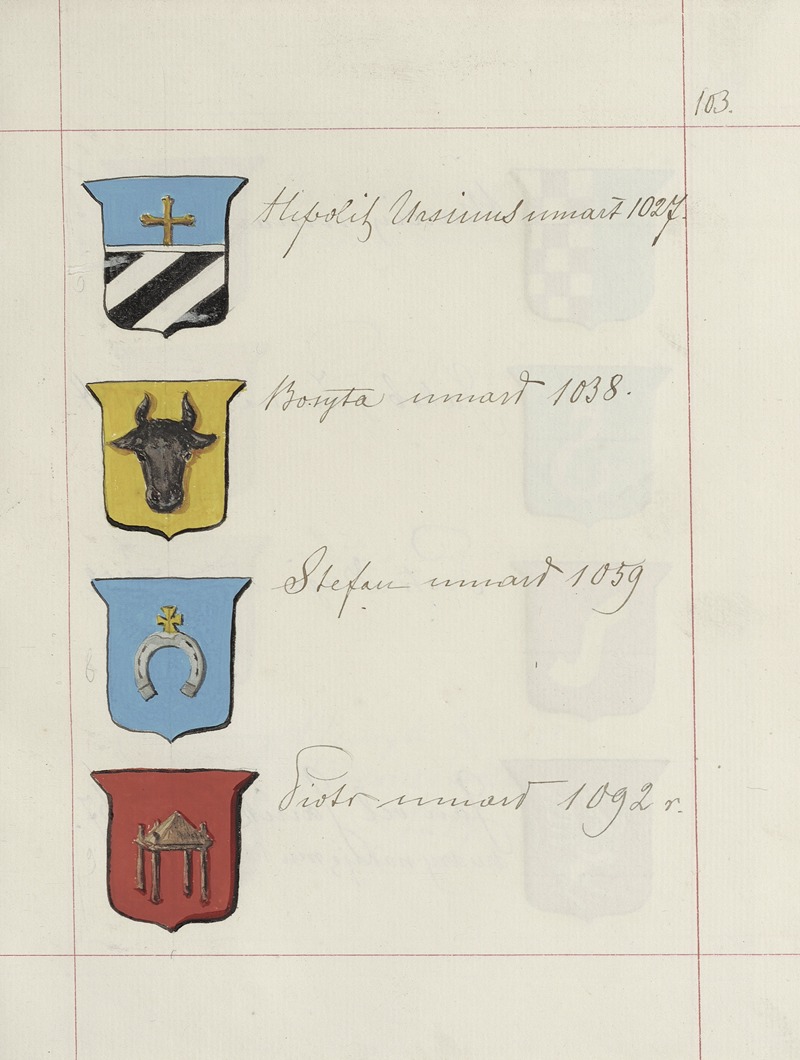 103.
Hipolit Ursinus umarł 1027.
Bosyta umarł 1038.
Stefan umarł 1059
Piotr umarł 1092 r.